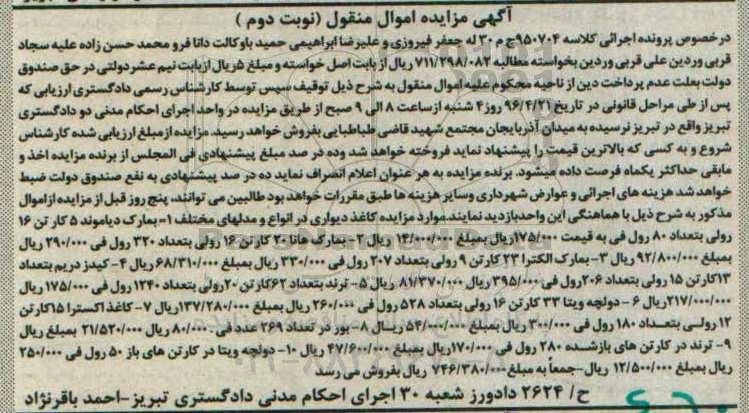 آگهی مزایده اموال منقول (نوبت دوم )
درخصوص پرونده اجرائی کلاسه ۹۵۰۷۰۴ج م ۳۰ له جعفر فیروزی و علیرضا ابراهیمی حمید باوکالت دانا فرو محمد حسن زاده علیه سجاد
قربی وردین علی قربی وردین بخواسته مطالبه ۷۱۱/۲۹۸/۰۸۲ ریال از بابت اصل خواسته و مبلغ ۵ریال ازبابت نیم عشردولتی در حق صندوق
دولت بعلت عدم پرداخت دین از ناحیه محکوم علیه اموال منقول به شرح ذیل توقیف سپس توسط کارشناس رسمی دادگستری ارزیابی که
پس از طی مراحل قانونی در تاریخ ۹۶/۴/۲۱ روز۴ شنبه ازساعت ۸ الی ۹ صبح از طریق مزایده در واحد اجرای احکام مدنی دو دادگستری
تبریز واقع در تبریز نرسیده به میدان آذربایجان مجتمع شهید قاضی طباطبایی بفروش خواهد رسید. مزایده ازمبلغ ارزیابی شده کارشناس
شروع و به کسی که بالاترین قیمت را پیشنهاد نماید فروخته خواهد شد وده در صد مبلغ پیشنهادی فی المجلس از برنده مزایده اخذ و
مابقی حداکثر یکماه فرصت داده میشود. برنده مزایده به هر عنوان اعلام انصراف نماید ده در صد پیشنهادی به نفع صندوق دولت ضبط
خواهد شد هزینه های اجرائی و عوارض شهرداری وسایر هزینه ها طبق مقررات خواهد بود طالبین می توانند، پنج روز قبل از مزایده ازاموال
مذکور به شرح ذیل با هماهنگی این واحدبازدید نمایند.موارد مزایده کاغذ دیواری در انواع و مدلهای مختلف ۱=بمارک دیاموند ۵ کار تن ۱۶
رولی بتعداد ۸۰ رول فی به قیمت ۱۷۵/۰۰۰ریال بمبلغ ۱۴/۰۰۰/۰۰۰ ریال ۲- بمارک هانا ۲۰ کارتن ۱۶ رولی بتعداد ۳۲۰ رول فی ۲۹۰/۰۰۰ ریال
بمبلغ ۹۲/۸۰۰/۰۰۰ ریال ۳- بمارک الکترا ۲۳ کارتن ۹ رولی بتعداد ۲۰۷ رول فی ۳۳۰/۰۰۰ ریال بمبلغ ۶۸/۳۱۰/۰۰۰ ریال ۴- کیدز دریم بتعداد
۱۳کارتن ۱۵ رولی بتعداد ۲۰۶رول فی ۳۹۵/۰۰۰ریال ۸۱/۳۷۰/۰۰۰ ریال ۵- ترند بتعداد ۶۲کارتن ۲۰رولی بتعداد ۱۲۴۰ رول فی ۱۷۵/۰۰۰ ریال
۲۱۷/۰۰۰/۰۰۰ریال ۶ - دولچه ویتا ۳۳ کارتن ۱۶ رولی بتعداد ۵۲۸ رول فی ۲۶۰/۰۰۰ ریال بمبلغ ۱۳۷/۲۸۰/۰۰۰ریال ۷- کاغذ اکسترا ۱۵کارتن
۱۲ رولی بتعداد ۱۸۰ رول فی ۳۰۰/۰۰۰ ریال بمبلغ ۵۴/۰۰۰/۰۰۰ ریال ۸- بور در تعداد ۲۶۹ عدد فی ۸۰/۰۰۰ ریال بمبلغ ۲۱/۵۲۰/۰۰۰ ریال
۹- ترند در کارتن های بازشده ۲۸۰ رول فی ۱۷۰/۰۰۰ریال بمبلغ ۴۷/۶۰۰/۰۰۰ ریال ۱۰- دولچه ویتا در کارتن های باز ۵۰ رول فی ۲۵۰/۰۰۰
ریال بمبلغ ۱۲/۵۰۰/۰۰۰ ریال-جمعاً به مبلغ ۷۴۶/۳۸۰/۰۰۰ ریال بفروش می رسد
ح/ ۲۶۲۴ دادورز شعبه ۳۰ اجرای احکام مدنی دادگستری تبریز-احمد باقرنژاد